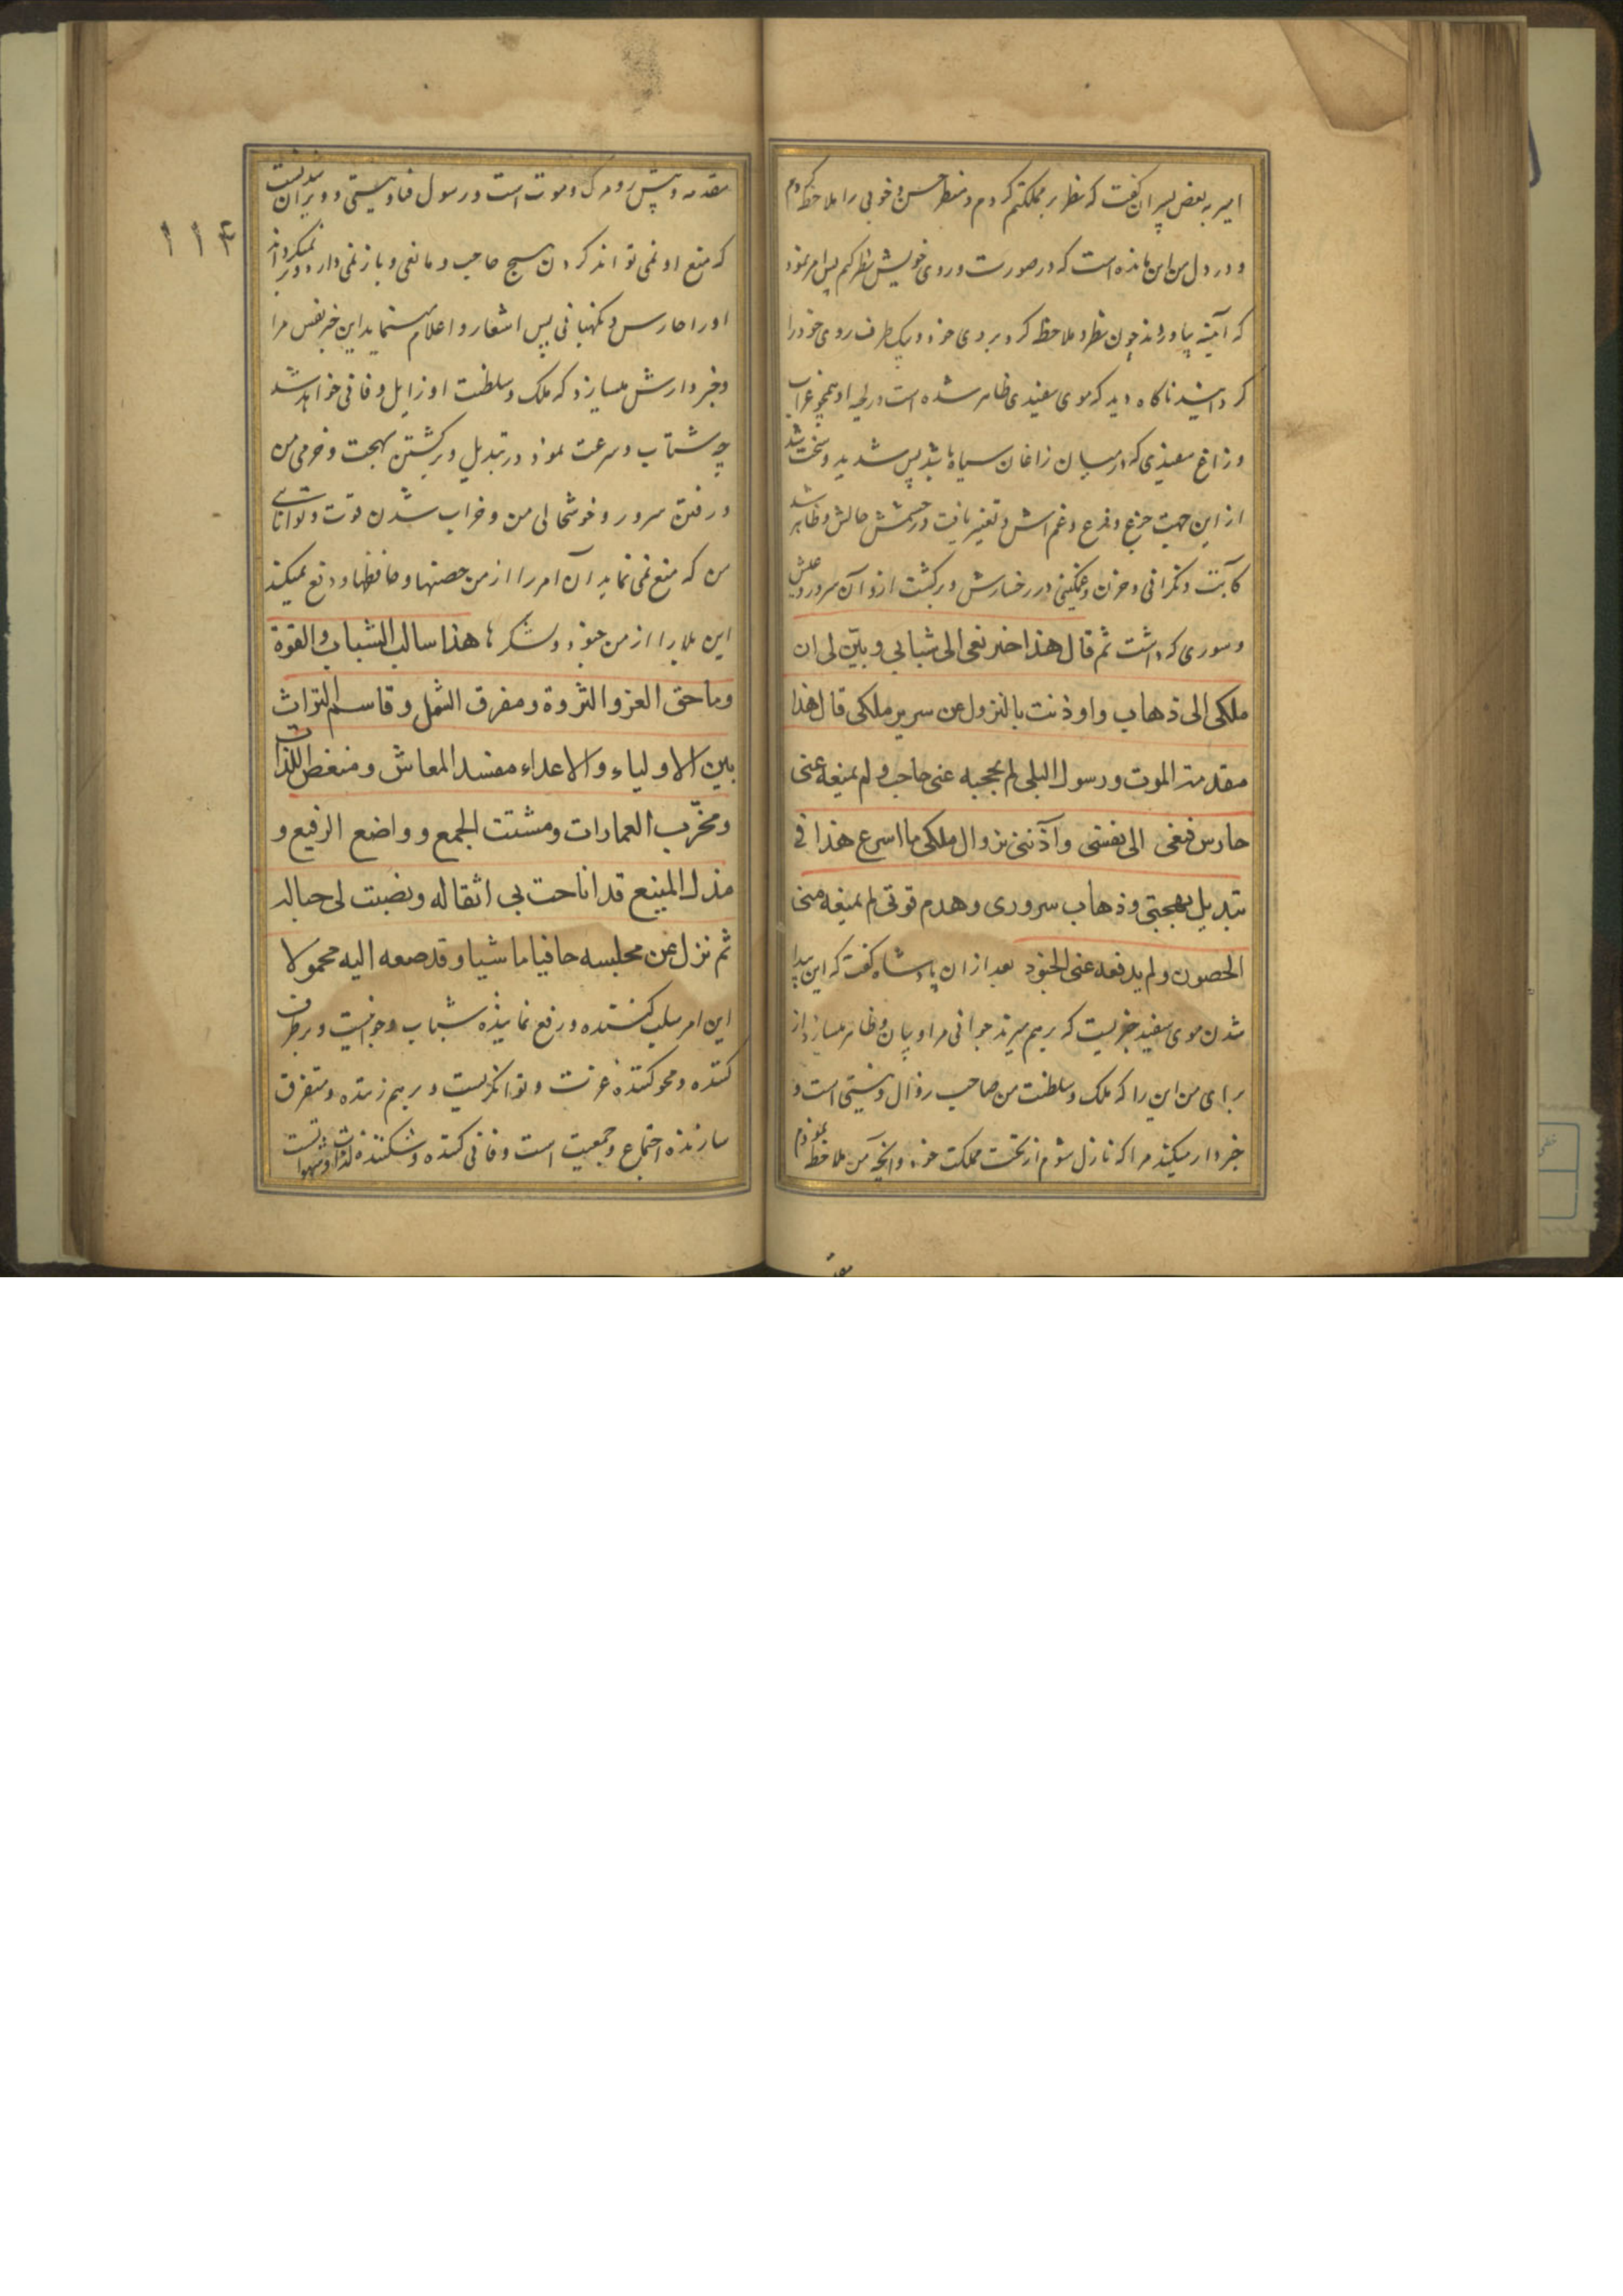 امیر به بعض پسران گفت که نظر بر مملکتم کردم و منظر حسن و خوبی را ملاحظه کردم
و در دل من این مانده است که در صورت و روی خویش نظر کنم پس امر نمود
که آینه بیاوردند چون نظر و ملاحظه کرد بروی خود و یک طرف روی خود را
که دانید ناگاه دید که موی سفیدی ظاهر شده است در لحیه او همچو غراب
و زاغ سفیدی که در میان زاغان سیاه باشد پس شدید و سخت شد
از این جهت جزع و فزع و غم اش و تغییر یافت در چشمش حالش و ظاهر شد
کآبت و نگرانی و حزن و غمگینی در رخسارش و برگشت ازو آن سرور و عیش
و سوری که داشت ثم قال هذا خبر نعی الی شبابی و بیّن لی ان
ملکی الی ذهاب و اوذنت بالنزول عن سریر ملکی قال هذا
مقدمة الموت و رسول البلی لم یحجبه عنی حاجب و لم یمنعه عنی
حارس فنعی الی نفسی و آذننی بزوال ملکی ما اسرع هذا فی
تبدیل بهجتی و ذهاب سروری و هدم قوتی لم یمنعه منی
الحصون و لم یدفعه عنی الجنود بعد از ان پادشاه گفت که این پیدا
شدن موی سفید خبریست که بر هم میزند جوانی مرا و بیان و ظاهر میسازد از
برای من این را که ملک و سلطنت من صاحب زوال و نیستی است و
خبردار میکند مرا که نازل شوم از تخت مملکت خود و آنچه من ملاحظه نمودم
مقد
۱۱۴
مقدمه و پیش رو مرک و موت است و رسول فنا و نیستی و ویران شدنست
که منع او نمی تواند کردن هیچ حاجب و مانعی و باز نمی دارد و بر نمیگرداند
او را حارس و نگهبانی پس اشعار و اعلام مینماید این خبر نفس مرا
و خبردارش میسازد که ملک و سلطنت او زایل و فانی خواهد شد
چه شتاب و سرعت نمود در تبدیل و برگشتن بهجت و خرمی من
و رفتن سرور و خوشحالی من و خراب شدن قوت و توانائی
من که منع نمی نماید آن امر را از من حصنها و حافظها و دفع نمیکند
این بلا را از من جنود و لشکرها هذا سالب الشباب و القوة
و ماحق العز و الثروة و مفرق الشمل و قاسم التراث
بین الاولیاء و الاعداء مفسد المعاش و منغص اللذات
و مخرّب العمارات و مشتت الجمع و واضع الرفیع و
مذل المنیع قد اناخت بی اثقاله و نصبت لی حباله
ثم نزل عن مجلسه حافیا ماشیا و قد صعد الیه محمولا
این امر سلب کننده و رفع نماینده شباب و جوانیست و برطرف
کننده و محو کننده عزت و توانگریست و بر هم زننده و متفرق
سازنده اجتماع و جمعیت است و فانی کننده و شکننده لذات و شهوات